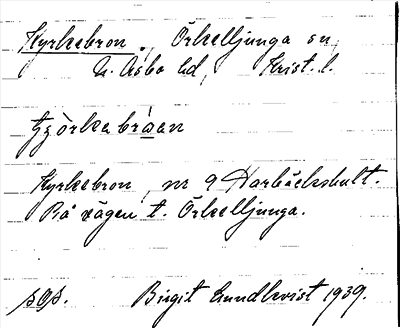 Kyrkebron, Örkelljunga sn,
N. Åsbo hd, Krist. l.
tjörkebråen
Kyrkebron, nr 9 Harbäckshult.
På vägen t. Örkelljunga.
sOs. Birgit Lundkvist 1939.